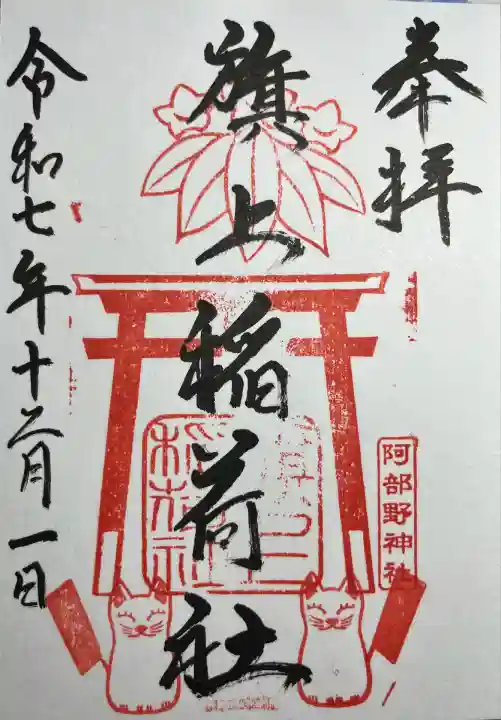 奉拝
旗上稲荷社
阿部野神社
令和七年十二月一日